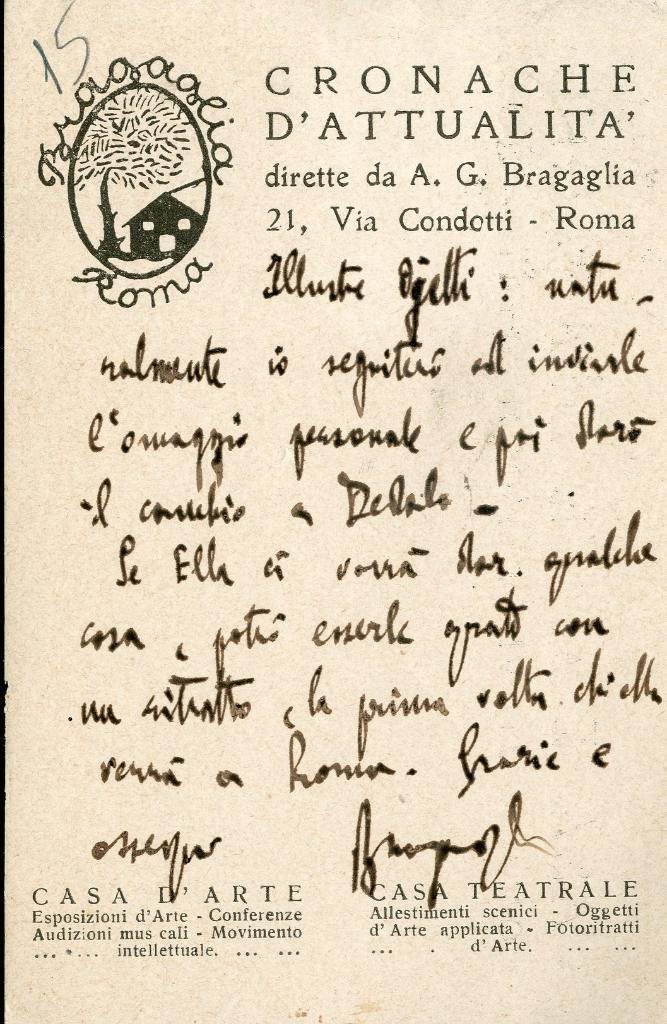 15
Bragaglia
Roma
CRONACHE
D'ATTUALITA'
dirette da A. G. Bragaglia
21, Via Condotti - Roma
Illustre Ojetti : natu -
ralmente io seguiterò ad inviarle
l'omaggio personale e poi darò
il cambio a Dedalo -
Se Ella ci vorrà dar qualche
cosa, potrò esserle grato con
un ritratto, la prima volta ch'ella
verrà a Roma. Grazie e
ossequi Bragaglia
CASA D'ARTE
Esposizioni d'Arte - Conferenze
Audizioni mus cali - Movimento
... ... intellettuale. ... ...
CASA TEATRALE
Allestimenti scenici - Oggetti
d'Arte applicata - Fotoritratti
... . d'Arte. ... ...